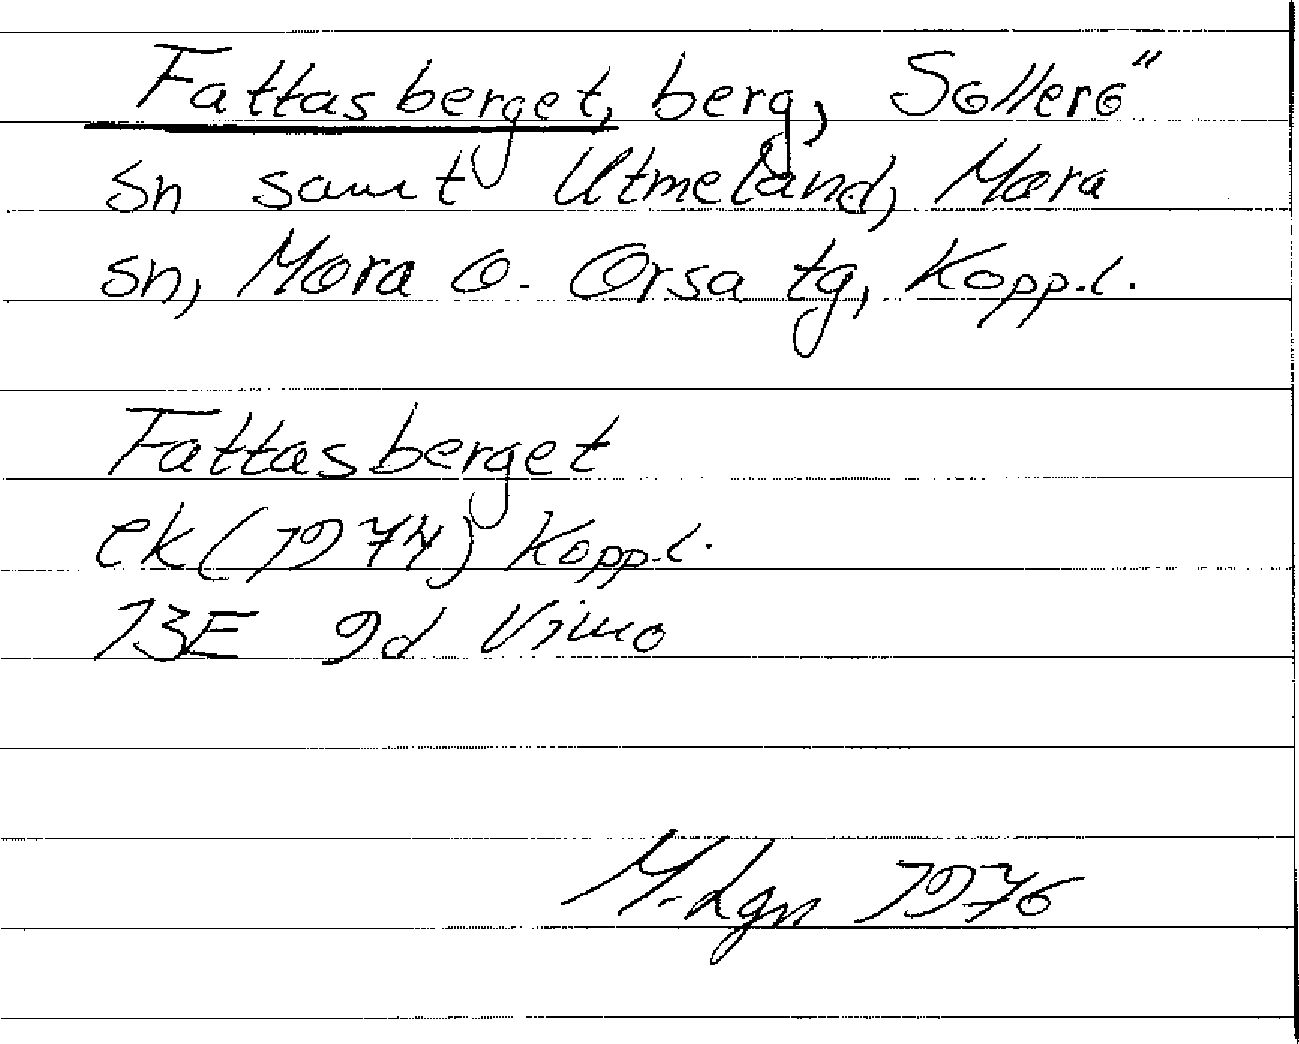 Fattasberget, berg, Sollerö
sn samt Utmeland, Mora
sn, Mora o. Orsa tg, Kopp.l.
Fattasberget
ek (1974) Kopp.l.
13E 9d Vimo
M. Lgn 1976